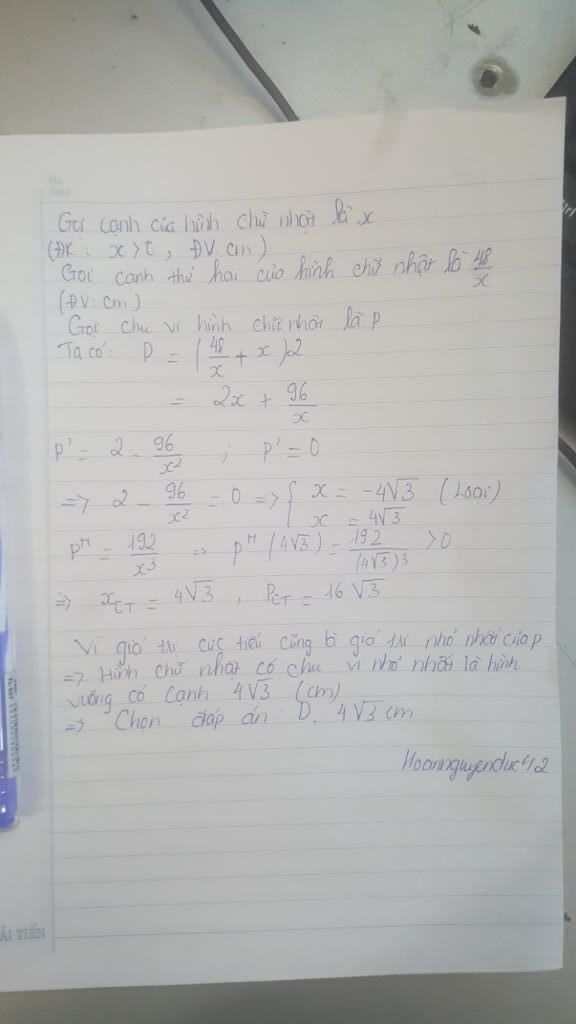 No.
Date
Gọi cạnh của hình chữ nhật là x
(ĐK: x > 0, ĐV cm)
Gọi cạnh thứ hai của hình chữ nhật là 48/x
(ĐV: cm)
Gọi chu vi hình chữ nhật là P
Ta có: P = (48/x + x)2
= 2x + 96/x
P' = 2 - 96/x² ; P' = 0
=> 2 - 96/x² = 0 => { x = -4√3 (Loại) x = 4√3
P" = 192/x³ => P"(4√3) = 192/(4√3)³ > 0
=> xCT = 4√3, PCT = 16√3
Vì giá trị cực tiểu cũng là giá trị nhỏ nhất của P
=> Hình chữ nhật có chu vi nhỏ nhất là hình
vuông có cạnh 4√3 (cm)
=> Chọn đáp án: D. 4√3 cm
ẢI TIẾN